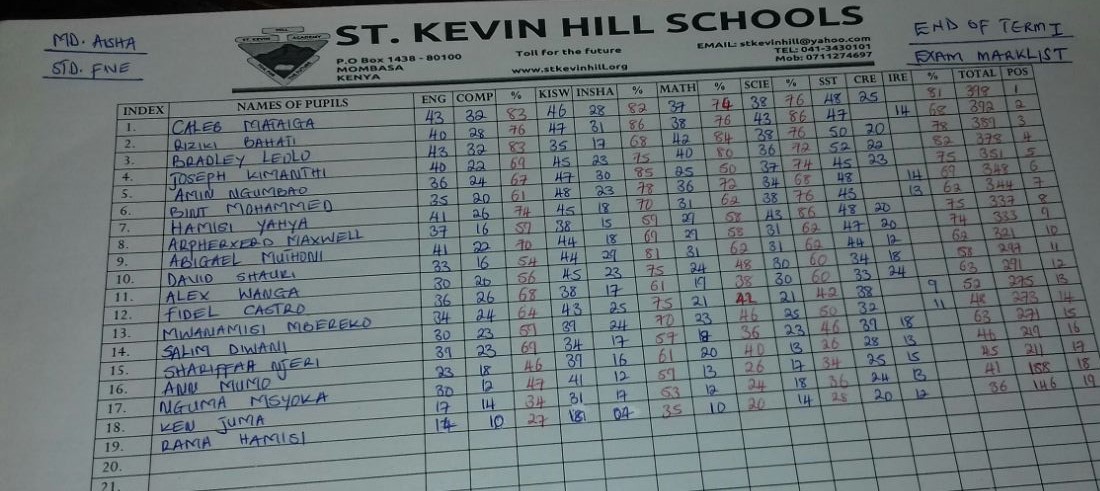 MD. AISHA
STD. FIVE
ST. KEVIN HILL SCHOOLS
P.O Box 1438 - 80100
MOMBASA
KENYA
Toll for the future
www.stkevinhill.org
EMAIL: stkevinhill@yahoo.com
TEL: 041-3430101
Mob: 0711274697
END OF TERM I
EXAM MARKLIST
INDEX NAMES OF PUPILS ENG COMP % KISW INSHA % MATH % SCIE % SST CRE IRE % TOTAL POS
1. CALEB MATAIGA 43 32 83 46 28 82 37 74 38 76 48 25 81 398 1
2. RIZIKI BAHATI 40 28 76 47 31 86 38 76 43 86 47 14 68 392 2
3. BRADLEY LEOLO 43 32 83 35 17 68 42 84 38 76 50 20 78 389 3
4. JOSEPH KIMANTHI 40 22 69 45 23 75 40 80 36 72 52 22 82 378 4
5. AMIN NGUMBAO 36 24 67 47 30 85 25 50 37 74 45 23 75 351 5
6. BINT MOHAMMED 35 20 61 48 23 78 36 72 34 68 48 14 69 348 6
7. HAMISI YAHYA 41 26 74 45 18 70 31 62 38 76 45 13 62 344 7
8. ARPHERXERD MAXWELL 37 16 59 38 15 59 29 58 43 86 48 20 75 337 8
9. ABIGAEL MUTHONI 41 22 70 44 18 69 29 58 31 62 47 20 74 333 9
10. DAVID SHAURI 33 16 54 44 29 81 31 62 31 62 44 12 62 321 10
11. ALEX WANGA 30 20 56 45 23 75 24 48 30 60 34 18 58 297 11
12. FIDEL CASTRO 36 26 68 38 17 61 19 38 30 60 33 24 63 291 12
13. MWANAMISI MBEREKO 34 24 64 43 25 75 21 42 21 42 38 9 52 275 13
14. SALIM DIWANI 30 23 59 39 24 70 23 46 25 50 32 11 48 273 14
15. SHARIFFAH NJERI 39 23 69 34 17 57 18 36 23 46 39 18 63 271 15
16. ANN MUMO 23 18 46 39 16 61 20 40 13 26 28 13 46 219 16
17. NGUMA MSYOKA 30 12 47 41 12 59 13 26 17 34 25 15 45 211 17
18. KEN JUMA 17 14 34 31 17 53 12 24 18 36 24 13 41 188 18
19. RAMA HAMISI 14 10 27 18 07 35 10 20 14 28 20 12 36 146 19
20.
21.